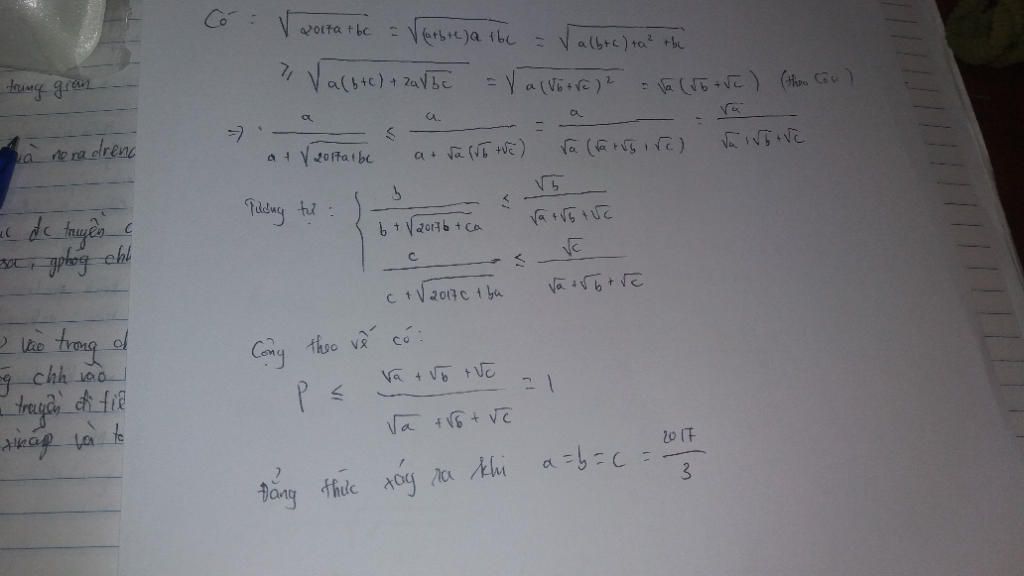 Có : √(2017a+bc) = √((a+b+c)a+bc) = √(a(b+c)+a²+bc)
≥ √(a(b+c)+2a√bc) = √(a(√b+√c)²) = √a(√b+√c) (theo Cauchy)
⇒ a/(a+√(2017a+bc)) ≤ a/(a+√a(√b+√c)) = a/(√a(√a+√b+√c)) = √a/(√a+√b+√c)
Tương tự : { b/(b+√(2017b+ca)) ≤ √b/(√a+√b+√c)
c/(c+√(2017c+ba)) ≤ √c/(√a+√b+√c)
Cộng theo vế có:
P ≤ (√a+√b+√c)/(√a+√b+√c) = 1
Đẳng thức xảy ra khi a=b=c = 2017/3
trung gian
và noradrena
đc truyền c
vào trong
chh vào
truyền đi
xináp và